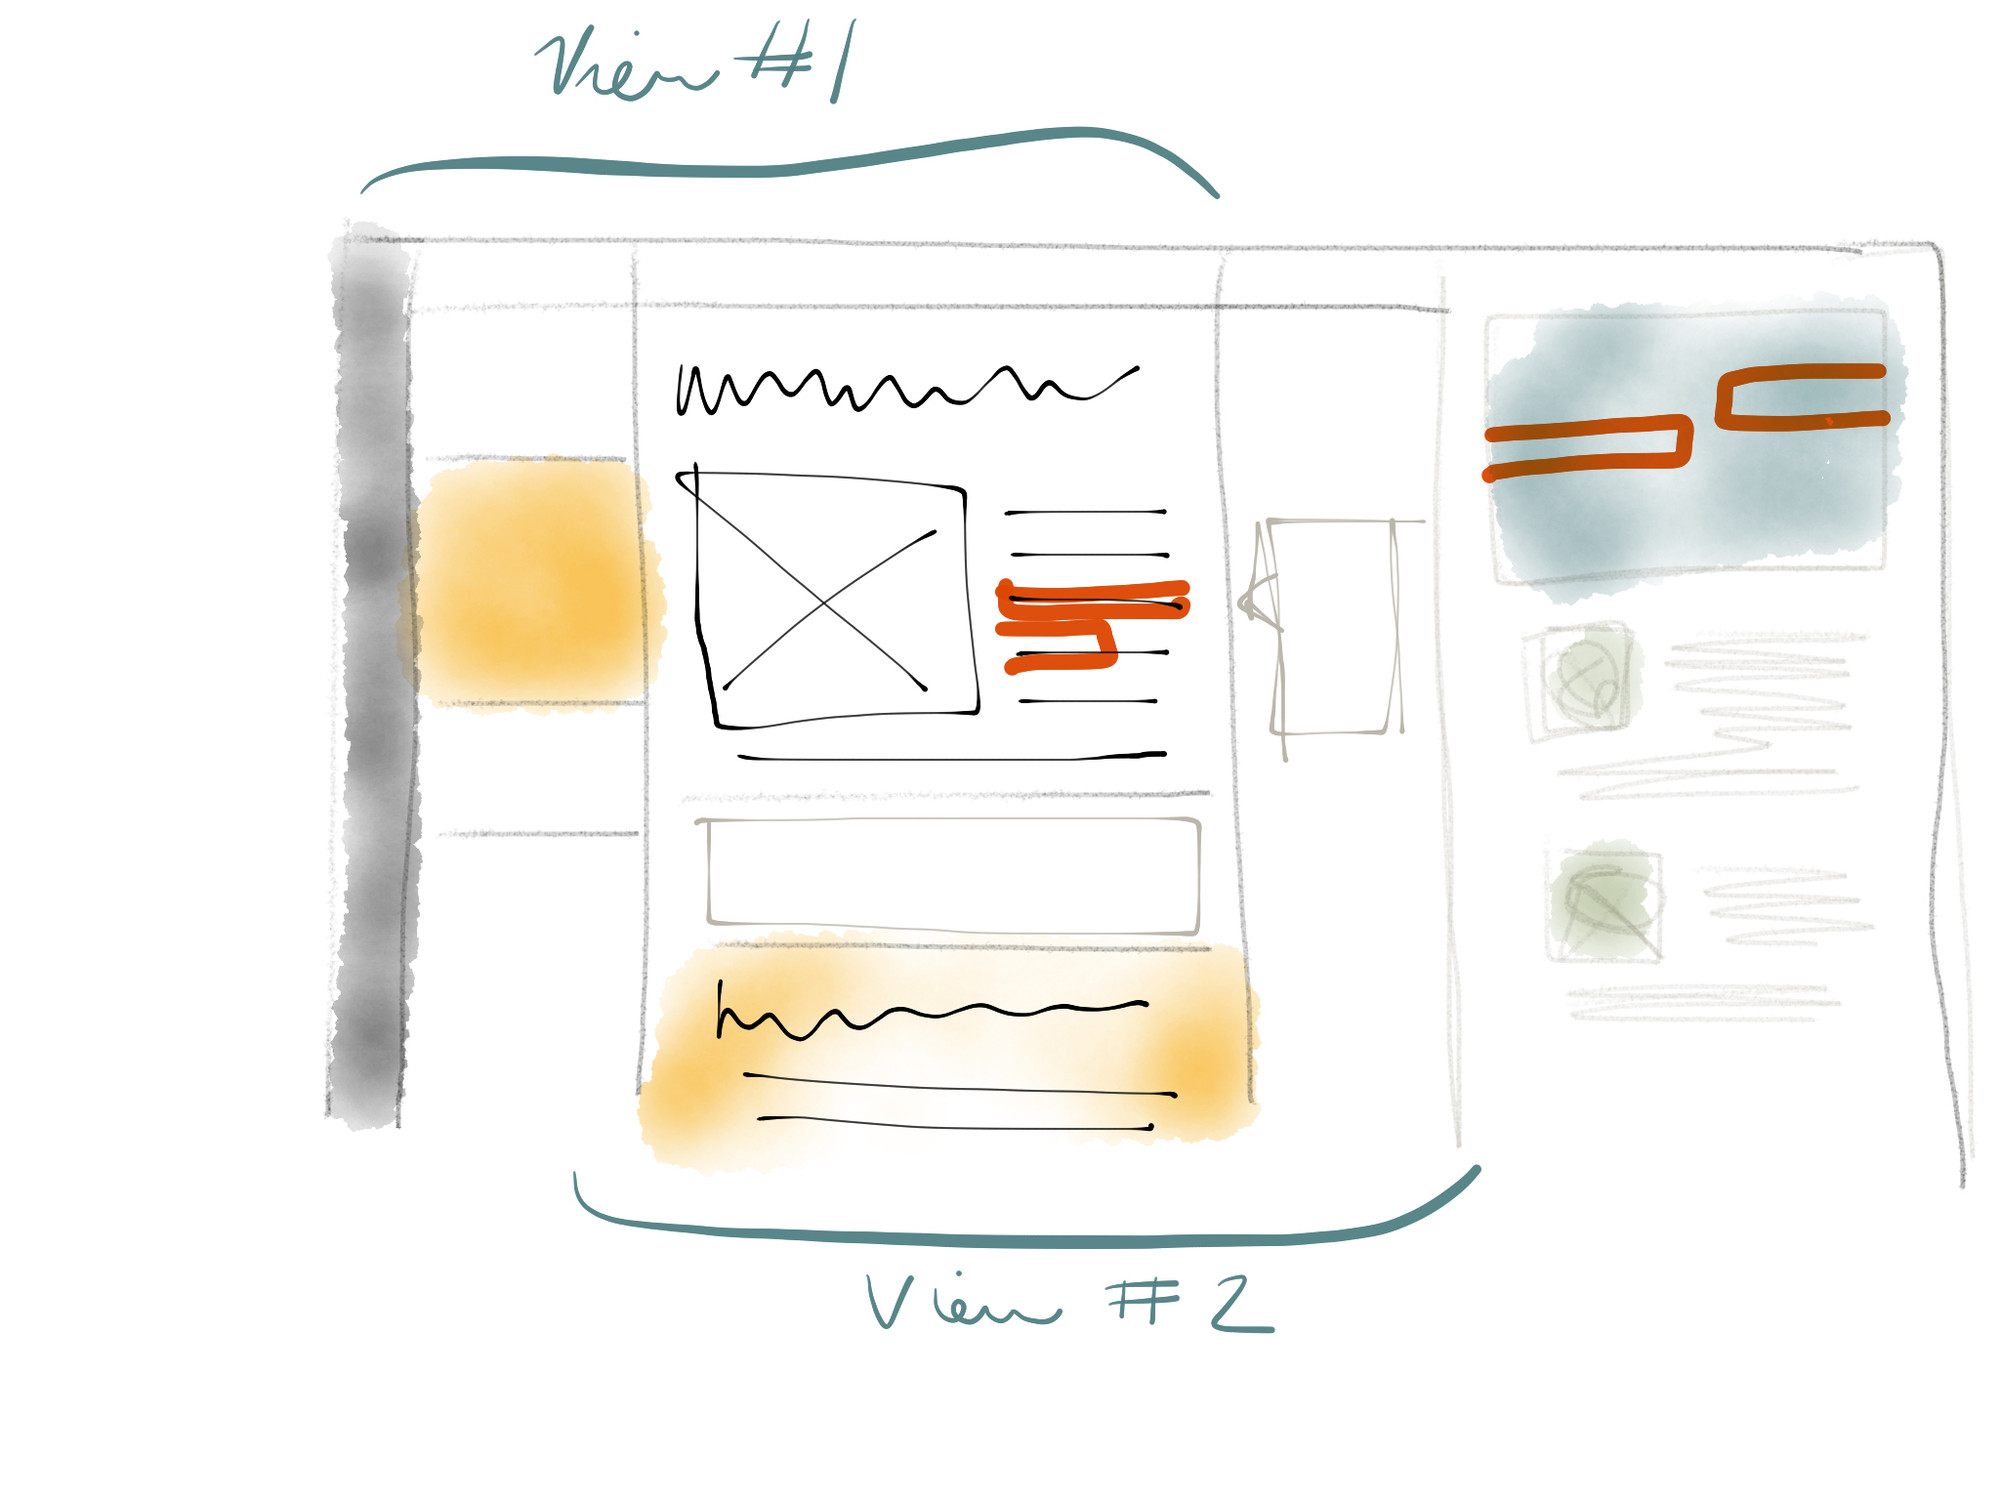 View #1
View #2